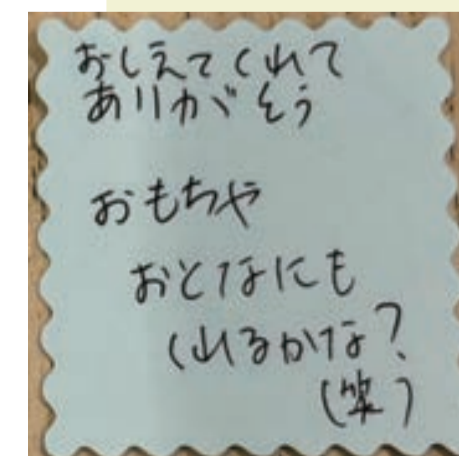 おしえてくれて
ありがとう
おもちゃ
おとなにも
くれるかな?
(笑)